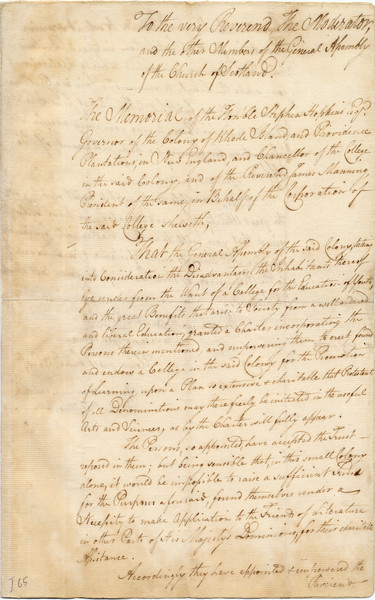 To the very Reverend, The Moderator,
and the other Members of the General Assembly
of the Church of Scotland.
The Memorial of the Honble Stephen Hopkins Esqr.
Governor of the Colony of Rhode Island and Providence
Plantations, in New England, and Chancellor of the College
in the said Colony, and of the Reverend James Manning
President of the same, in Behalf of the Corporation of
the said College Sheweth,
That the General Assembly of the said Colony, taking
into Consideration the Disadvantages the Inhabitants thereof
lye under from the Want of a College for the Education of Youth,
and the great Benefits that arise to Society from a well ordered
and liberal Education, granted a Charter incorporating the
Persons therein mentioned and empowering them to erect found
and endow a College in the said Colony for the Promotion
of Learning upon a Plan so extensive & charitable that Protestants
of all Denominations may there freely be initiated in the useful
Arts and Sciences, as by the Charter will fully appear.
The Persons, so appointed have accepted the Trust
reposed in them; but being sensible that, in this small Colony
alone, it would be impossible to raise a sufficient Fund
for the Purpose aforesaid, found themselves under a
Necessity to make Application to the Friends of Literature
in other Parts of His Majestys Dominions, for their charitable
Assistance.
Accordingly they have appointed & empowered the
J 68